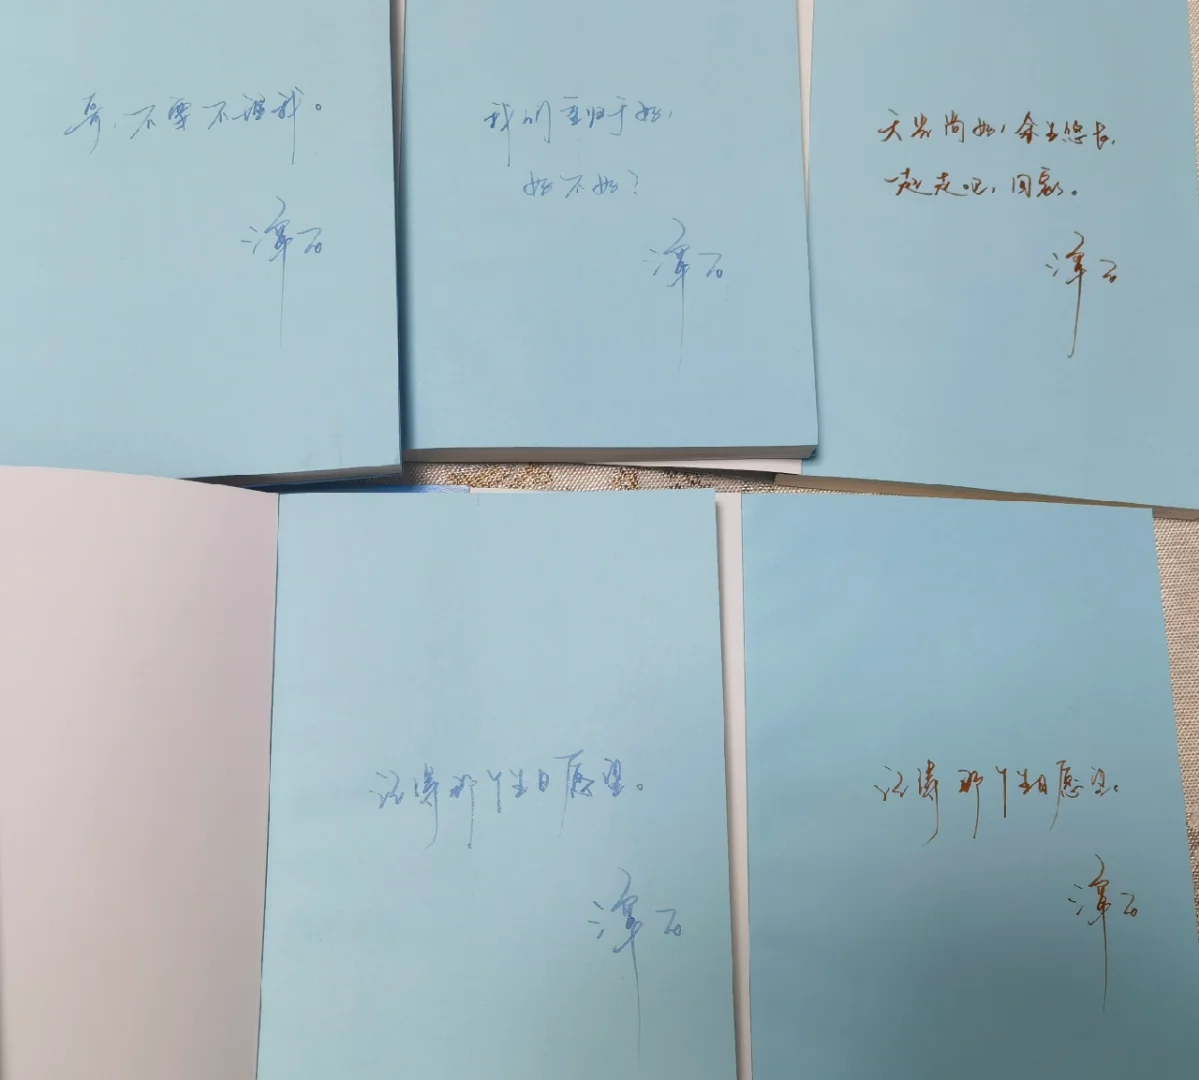 哥,不要不理我。
潭石
我们重归于好,
好不好?
潭石
天光尚好,余生悠长,
一起走吧,
潭石
记得那个生日愿望。
潭石
记得那个生日愿望。
潭石